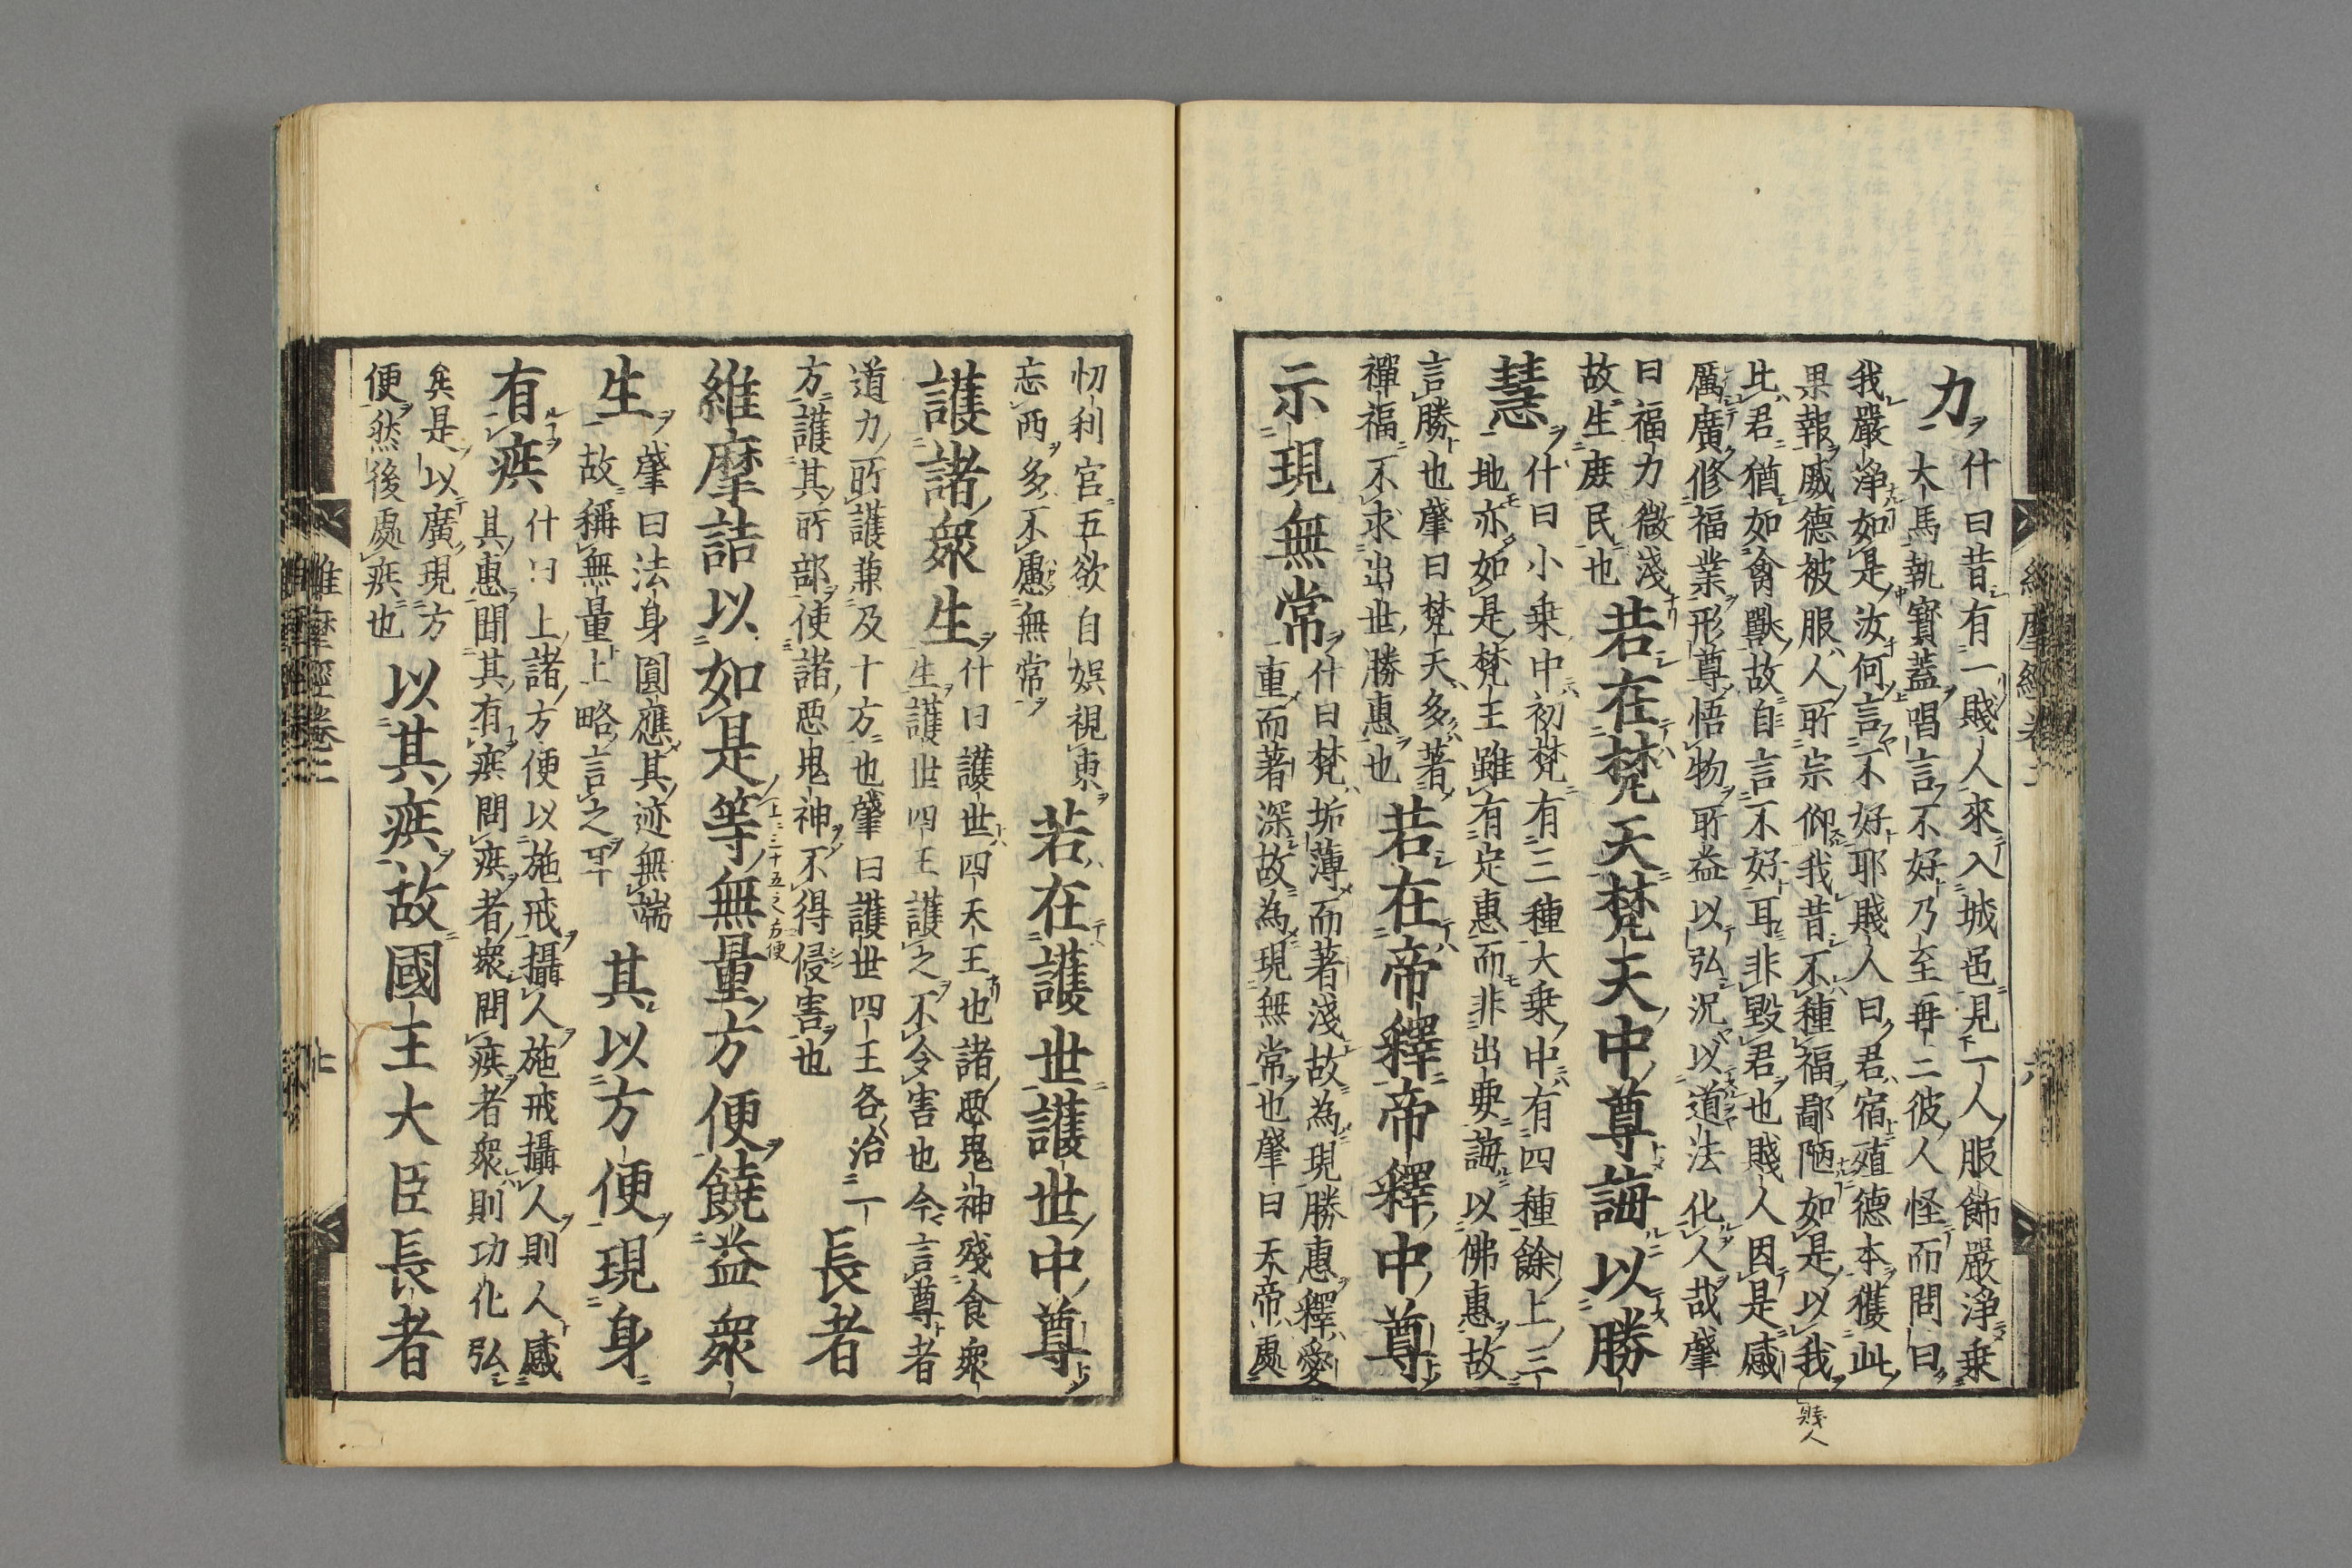 維摩經卷二
六
力
什曰昔有一賤人來入城邑見一人服飾嚴淨乗
大馬執寶蓋唱言不好乃至再二彼人怪而問曰
我嚴淨如是汝何言不好耶賤人曰君宿殖德本獲此
果報威德被服人所宗仰我昔不種福鄙陋如是以我
賤人
比君猶如禽獸故自言不好耳非毀君也賤人因是感
厲廣修福業形尊悟物所益以弘況以道法化人哉肇
曰福力微淺
故生庶民也
若在梵天梵天中尊誨以勝
慧
什曰小乗中初梵有三種大乗中有四種餘上三
地亦如是梵王雖有定惠而非出要誨以佛惠故
言勝也肇曰梵天多著
禪福不求出世勝惠也
若在帝釋帝釋中尊
示現無常
什曰梵垢薄而著淺故為現勝惠釋愛
重而著深故為現無常也肇曰天帝處
忉利宮五欲自娯視東
忘西多不慮無常
若在護世護世中尊
護諸衆生
什曰護世四天王也諸悪鬼神殘食衆
生護世四王護之不令害也今言尊者
道力所護兼及十方也肇曰護世四王各治一
方護其所部使諸悪鬼神不得侵害也
長者
維摩詰以如是等無量方便饒益衆
上三十五之方便
生
肇曰法身圓應其迹無端
故稱無量上略言之耳
其以方便現身
有疾
什曰上諸方便以施戒攝人施戒攝人則人感
其惠聞其有疾問疾者衆問疾者衆則功化弘
矣是以廣現方
便然後處疾也
以其疾故國王大臣長者
維摩經卷二
七